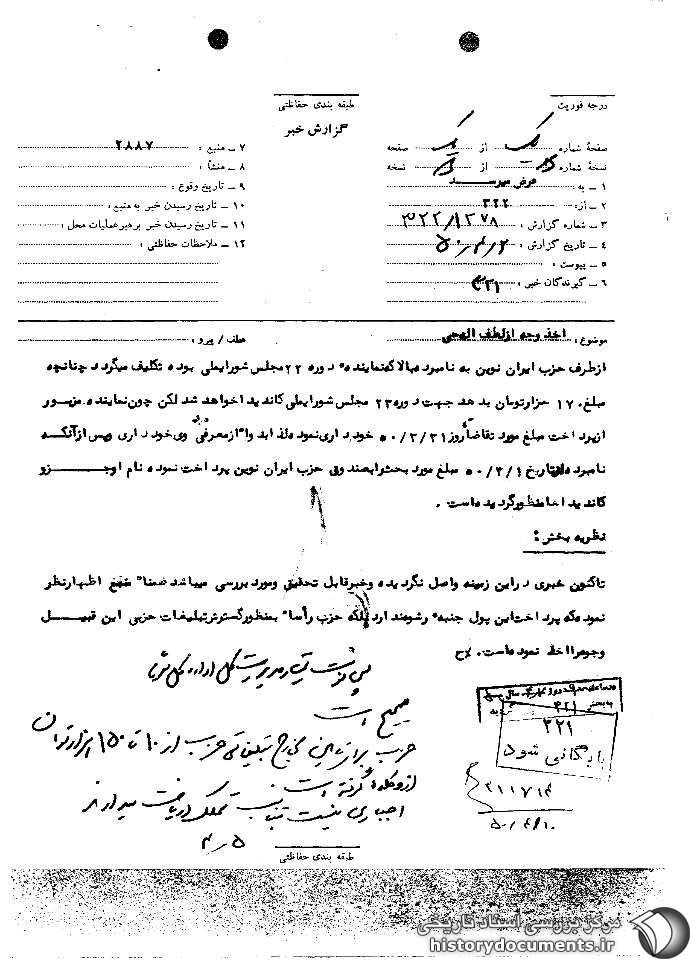 درجه فوریت
طبقه بندی حفاظتی
گزارش خبر
صفحهٔ شماره یک از یک صفحه
نسخهٔ شماره از نسخه
۱ ــ به : عرض میرسد
۲ ــ از: ۳۲۲
۳ ــ شماره گزارش : ۳۲۲/۱۲۷۸
۴ ــ تاریخ گزارش : ۵۰/۴/۲
۵ ــ پیوست :
۶ ــ گیرندگان خبر : ۳۲۱
۷ ــ منبع : ۲۸۸۷
۸ ــ منشأ :
۹ ــ تاریخ وقوع :
۱۰ ــ تاریخ رسیدن خبر به منبع :
۱۱ ــ تاریخ رسیدن خبر برهبر عملیات محل :
۱۲ ــ ملاحظات حفاظتی :
موضوع : اخذ وجه از لطف الهحی
عطف / پیرو :
ازطرف حزب ایران نوین به نامبرده بالا که نماینده دوره ۲۲ مجلس شورایملی بوده تکلیف میگردد چنانچه
مبلغ ۱۷۰ هزارتومان بدهد جهت دوره ۲۳ مجلس شورایملی کاندید اخواهد شد لکن چون نماینده مزبور
ازپرداخت مبلغ مورد تقاضا روز ۵۰/۲/۳۱ خودداری نموده لذا بدوا" ازمعرفی وی خودداری وپس ازآنکه
نامبرده درتاریخ ۵۰/۳/۱ مبلغ مورد بحث رابصندوق حزب ایران نوین پرداخت نموده نام او جزو
کاندیداها منظور گردیده است .
نظریه بخش :
تاکنون خبری در این زمینه واصل نگردیده وخبر قابل تحقیق ومورد بررسی میباشد ضمنا" منبع اظهارنظر
نموده که پرداخت این پول جنبه رشوه ندارد بلکه حزب رأسا" بمنظور گسترش تبلیغات حزبی این قبیل
وجوه را اخذ نموده است .
مدیریت کل اداره کل
صحیح است
حزب برای تأمین مخارج تبلیغاتی حزب از ۱۰ تا ۱۵۰ هزار تومان
از وکلا گرفته است
اجباری نیست
۴/۵
۳۲۱
۳۲۱
بایگانی شود
۲۱۱۷۱۴
۵۰/۴/۱۰
طبقه بندی حفاظتی
مرکز بررسی اسناد تاریخی
historydocuments.ir